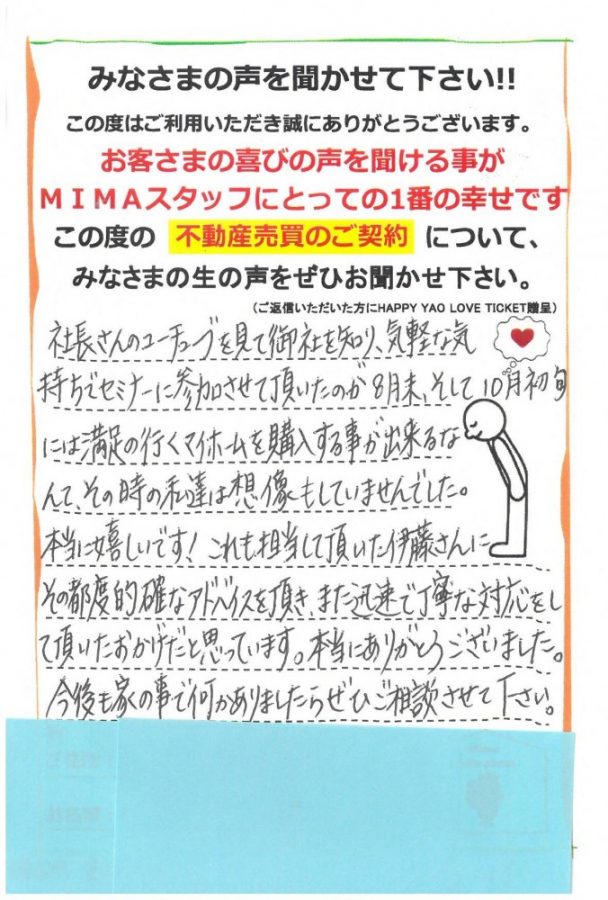 みなさまの声を聞かせて下さい!!
この度はご利用いただき誠にありがとうございます。
お客さまの喜びの声を聞ける事が
MIMAスタッフにとっての1番の幸せです
この度の 不動産売買のご契約 について、
みなさまの生の声をぜひお聞かせ下さい。
(ご返信いただいた方にHAPPY YAO LOVE TICKET贈呈)
社長さんのユーチューブを見て御社を知り、気軽な気
持ちでセミナーに参加させて頂いたのが8月末、そして10月初旬
には満足の行くマイホームを購入する事が出来るな
んて、その時の私達は想像もしていませんでした。
本当に嬉しいです! これも担当して頂いた伊藤さんに
その都度的確なアドバイスを頂き、また迅速で丁寧な対応をし
て頂いたおかげだと思っています。本当にありがとうございました。
今後も家の事で何かありましたらぜひご相談させて下さい。